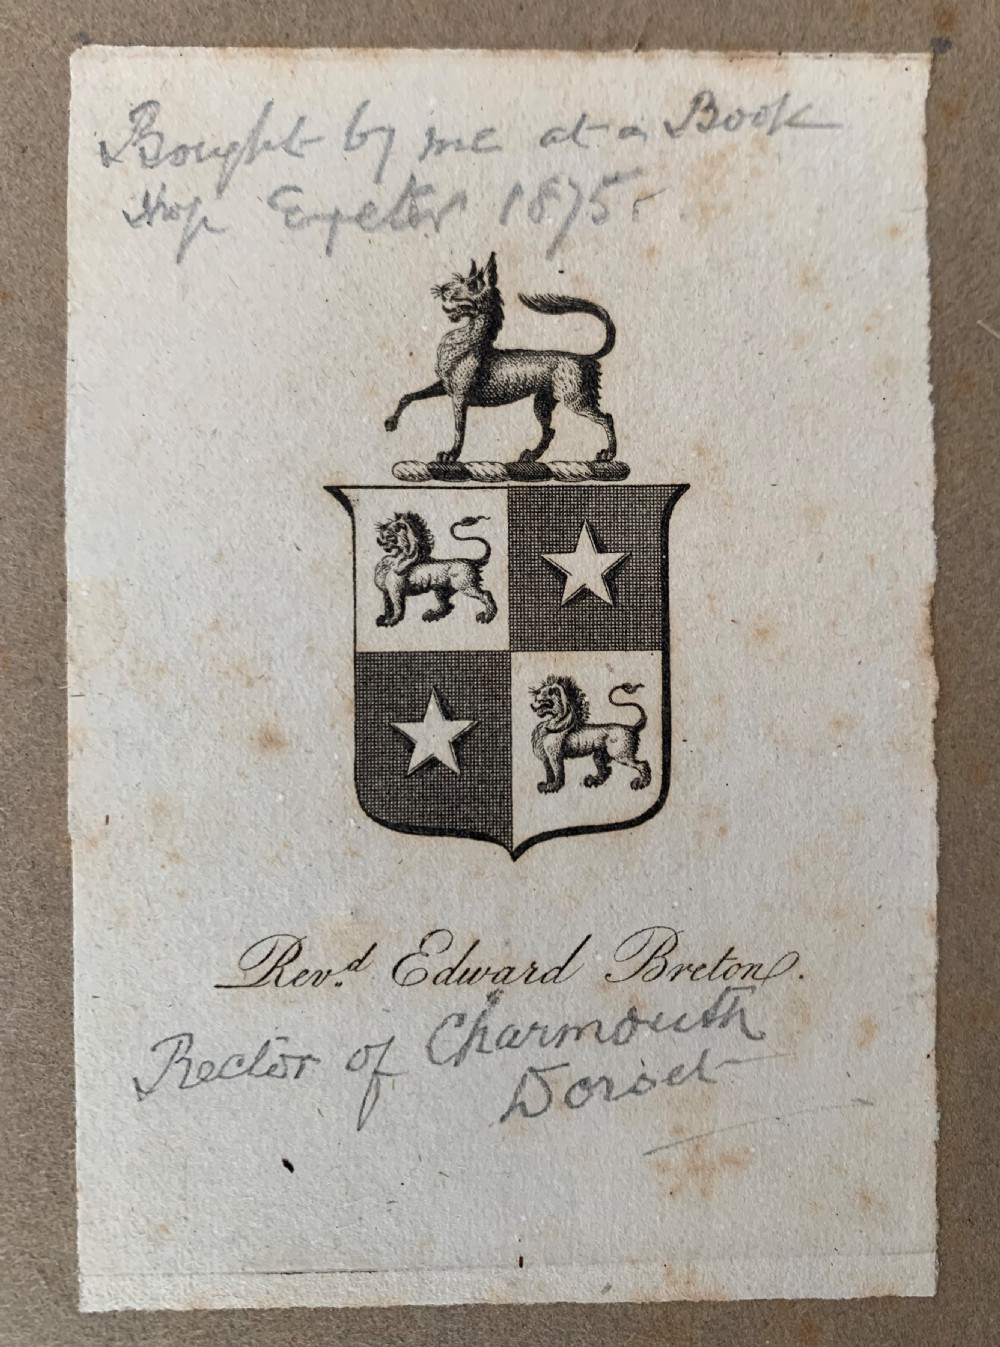 Bought by me at a Book
Shop Exeter 1875.
Rev.d Edward Breton.
Rector of Charmouth
Dorset